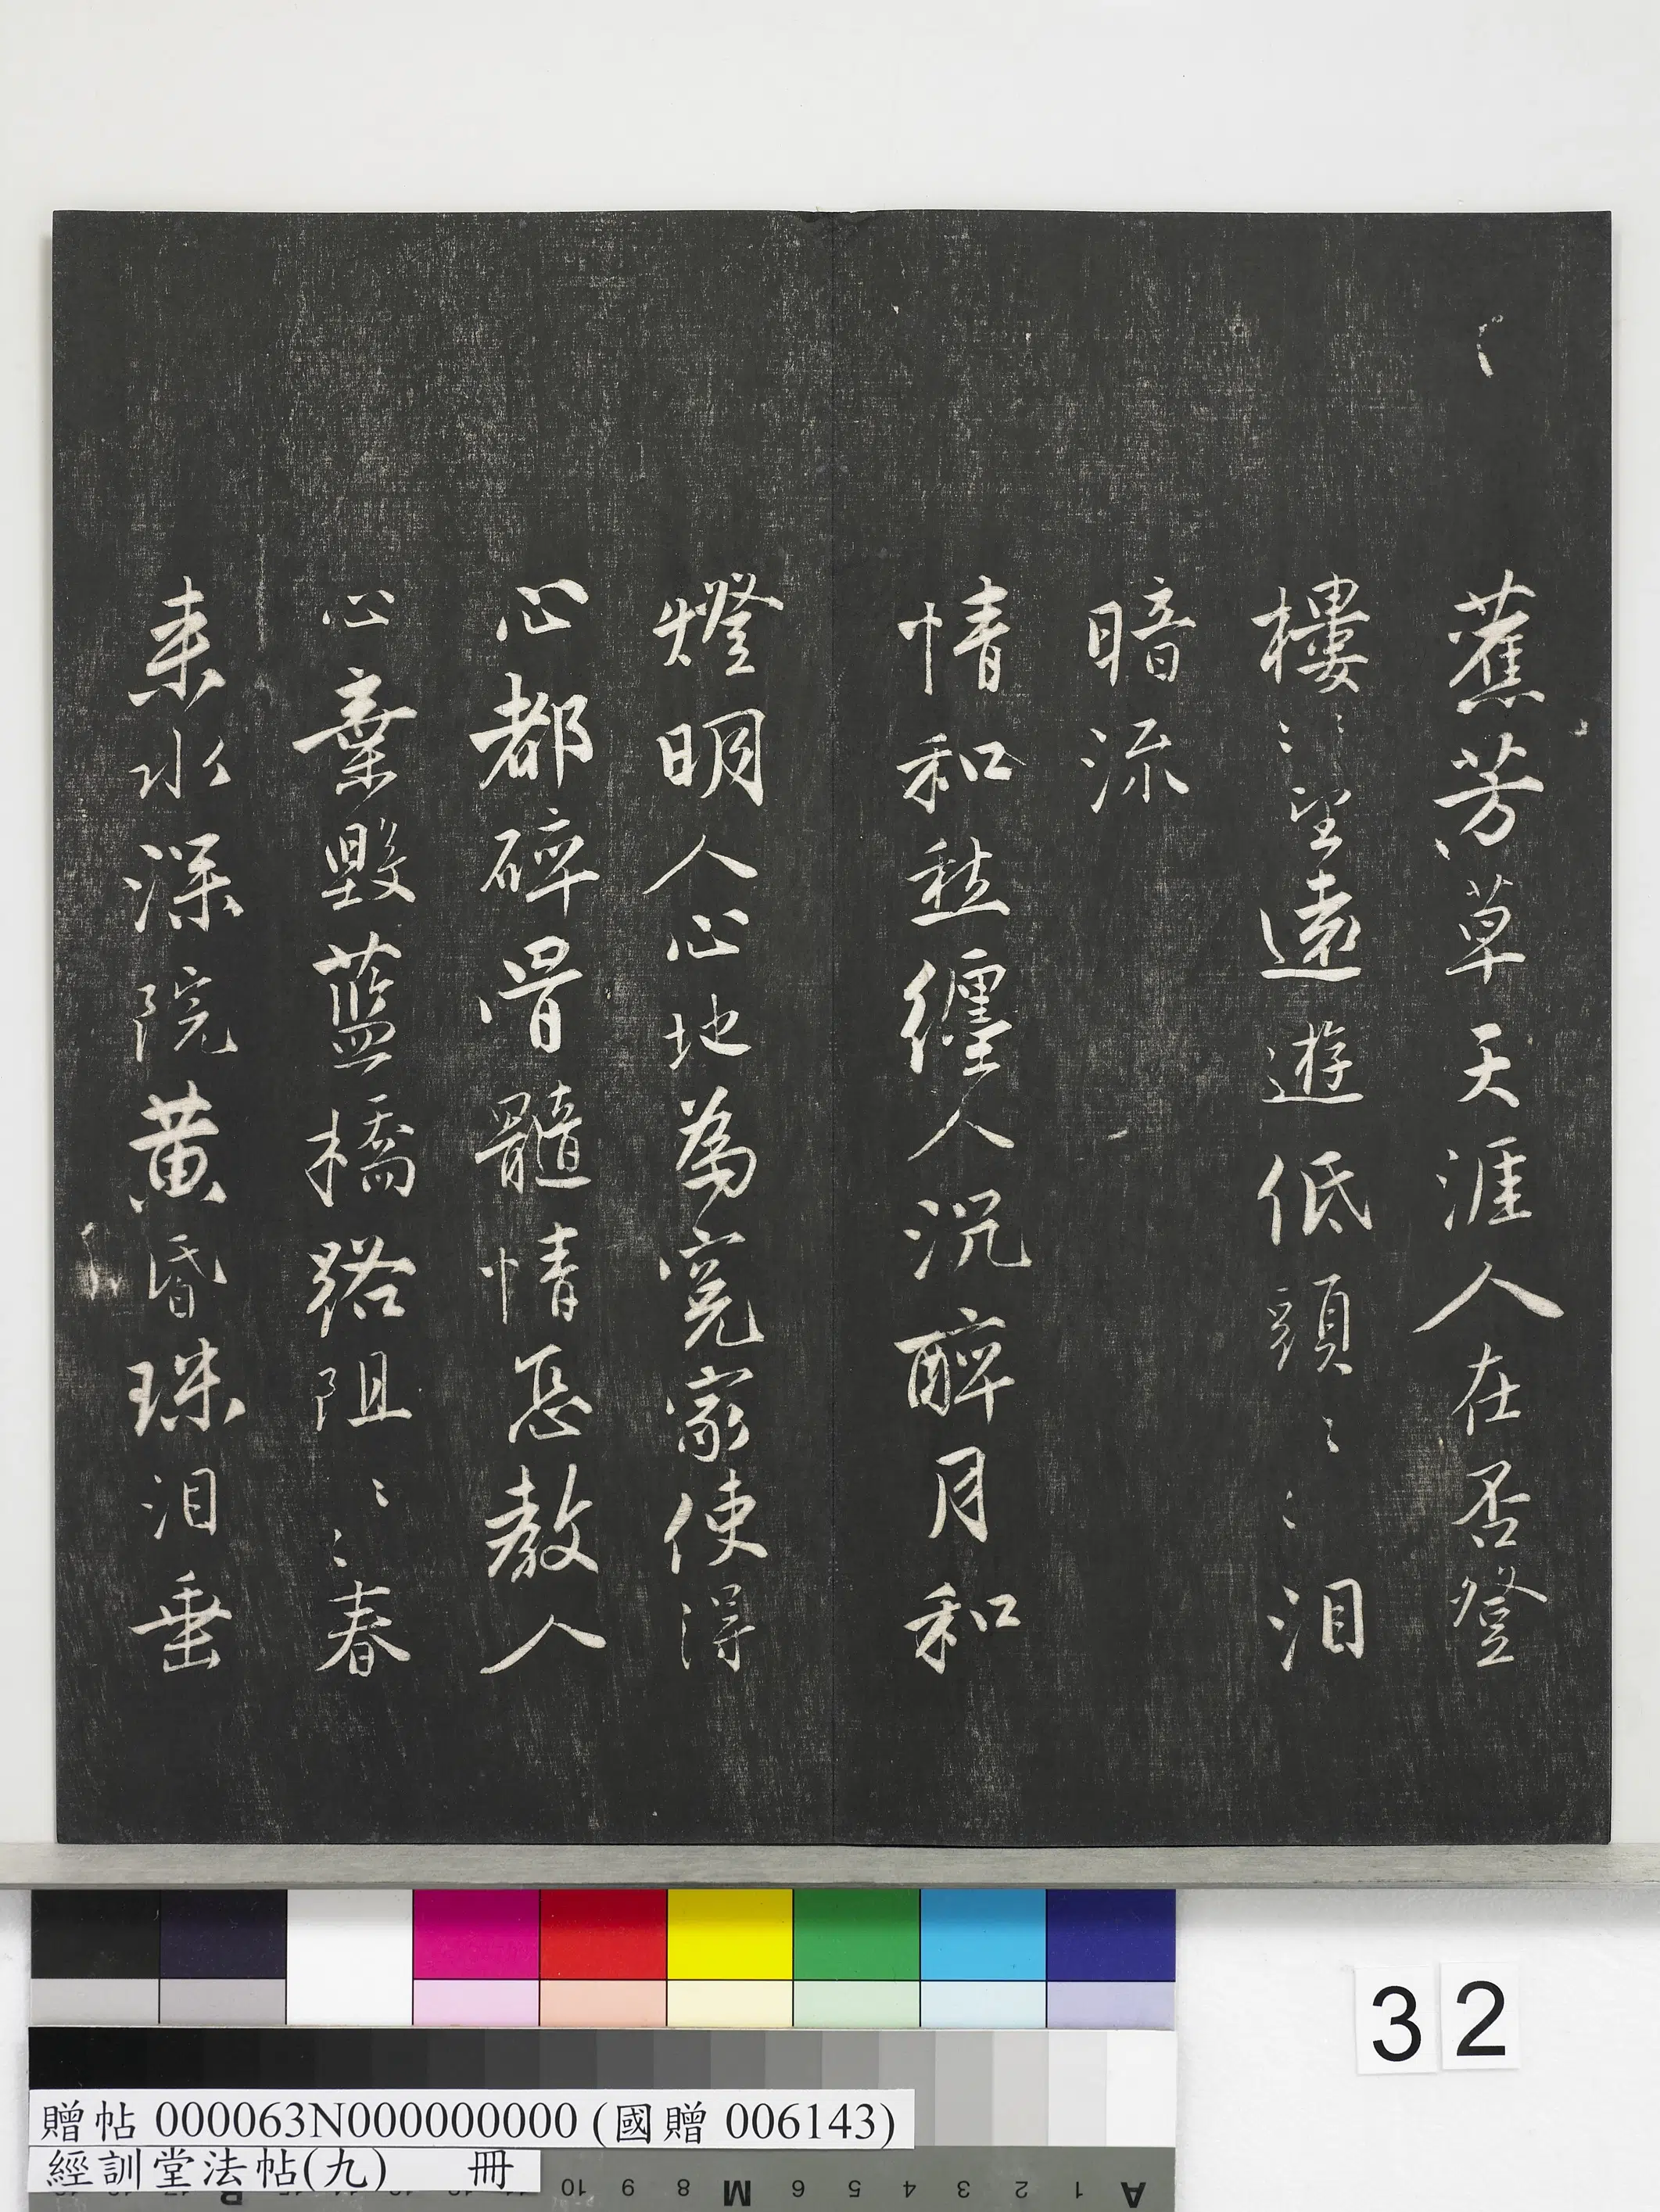 蕉芳草天涯人在否登
樓〻〻望遠遊低頭〻〻泪
暗流
情和愁纏人沉醉月和
燈明人心地為冤家使得
心都碎骨髓情教人
心棄毀藍橋路阻〻〻春
来水深院黄昏珠泪垂
32
贈帖 000063N000000000 (國贈 006143)
經訓堂法帖(九) 冊
10 9 8 M 6 5 4 3 2 1 A